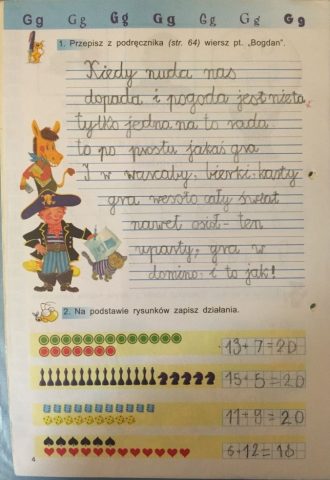 Gg Gg Gg Gg Gg Gg Gg
1. Przepisz z podręcznika (str. 64) wiersz pt. „Bogdan".
Kiedy nuda nas
dopada i pogoda jest nieta
tylko jedna na to rada
to po prostu jakaś gra
I w warcaby, bierki, karty
gra wesoło cały świat
nawet osioł - ten
uparty, gra w
domino: i to jak!
2. Na podstawie rysunków zapisz działania.
13+7=20
15+5=20
11+9=20
6+12=18
4